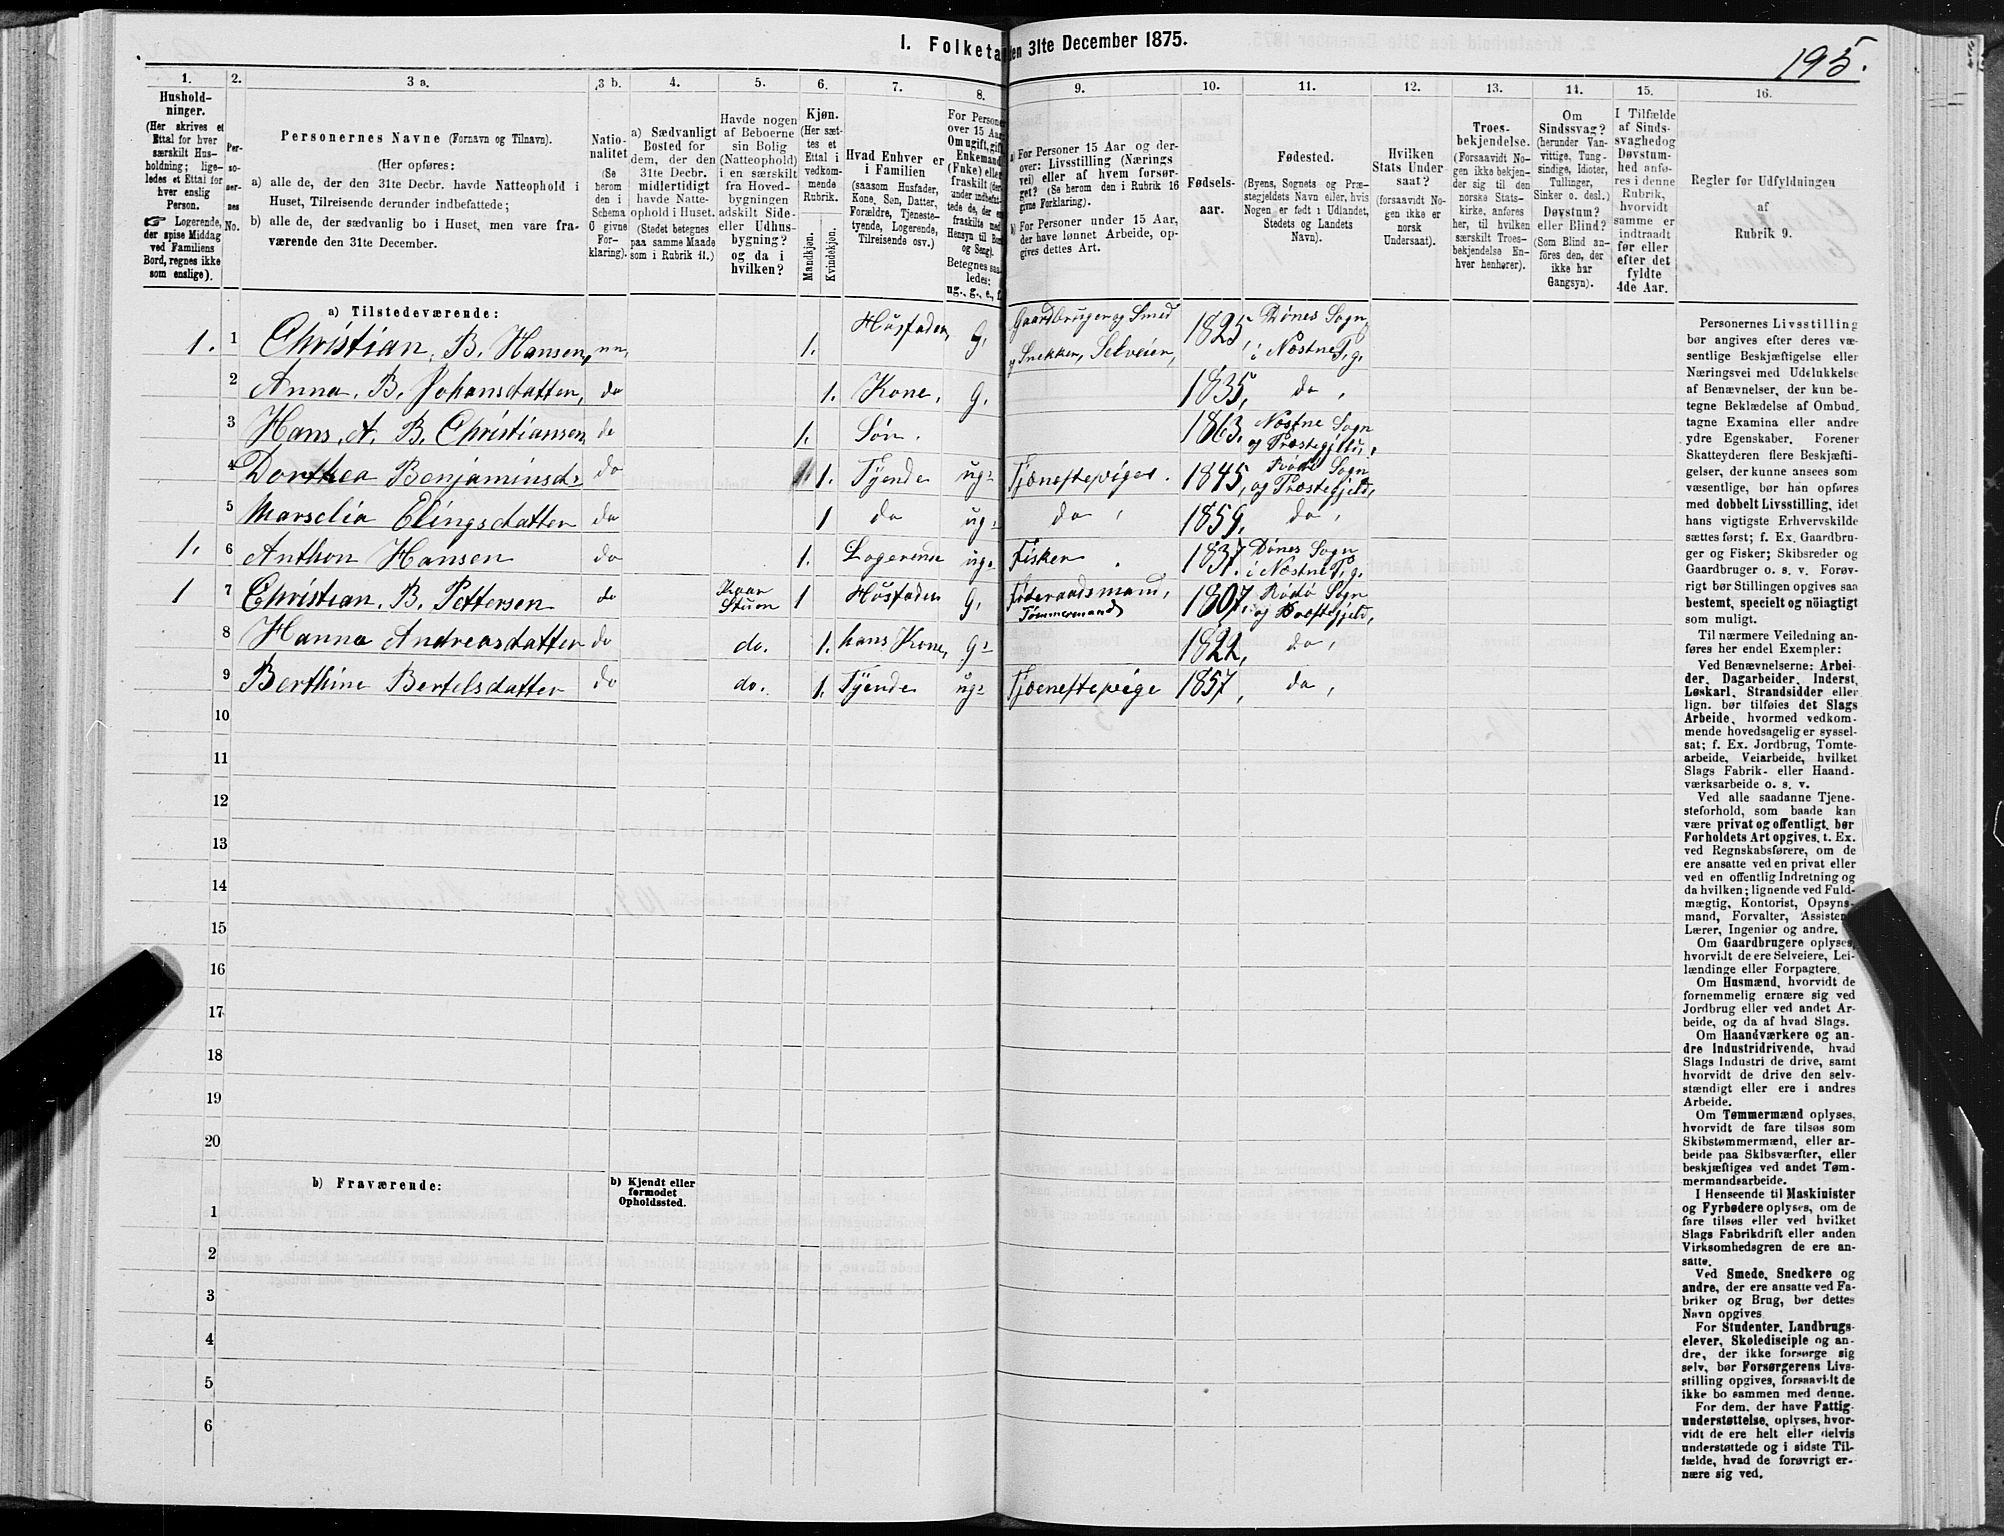 I. Folketa
en 31te December 1875.
195.
1.
2.
3 a.
3 b.
4.
5.
6.
7.
8.
9.
10.
11.
12.
13.
14.
15.
16.
Hushold-
ninger.
(Her skrives et
Ettal for hver
særskilt Hus-
holdning; lige-
ledes et Ettal for
hver enslig
Person.
☞ Logerende,
der spise Middag
ved Familiens
Bord, regnes ikke
som enslige).
Per-
so-
ner-
nes
No.
Personernes Navne (Fornavn og Tilnavn).
(Her opføres:
a) alle de, der den 31te Decbr. havde Natteophold i
Huset, Tilreisende derunder indbefattede;
b) alle de, der sædvanlig bo i Huset, men vare fra-
værende den 31te December.
Natio-
nalitet
(Se
herom
den i
Schema
O givne
For-
klaring).
a) Sædvanligt
Bosted for
dem, der den
31te Decbr.
midlertidigt
havde Natte-
ophold i Huset.
(Stedet betegnes
paa samme Maade
som i Rubrik 11.)
Havde nogen
af Beboerne
sin Bolig
(Natteophold)
i en særskilt
fra Hoved-
bygningen
adskilt Side-
eller Udhus-
bygning?
og da i
hvilken?
Kjøn.
(Her sæt-
tes et
Ettal i
vedkom-
mende
Rubrik.
Mandkjøn.
Kvindekjøn.
Hvad Enhver er
i Familien
(saasom Husfader,
Kone, Søn, Datter,
Forældre, Tjeneste-
tyende, Logerende,
Tilreisende osv.)
For Persone
over 15 Aar
Om ugift, gift,
Enkemand
(Enke) eller
fraskilt
Betegnes saa-
ledes:
ug., g., e., f.
a) For Personer 15 Aar og der-
over: Livsstilling (Nærings
vei) eller af hvem forsør-
get? (Se herom den i Rubrik 16
givne Forklaring).
b) For Personer under 15 Aar,
der have lønnet Arbeide, op-
gives dettes Art.
Fødsels-
aar.
Fødested.
(Byens, Sognets og Præ-
stegjeldets Navn, eller hvis
Nogen er født i Udlandet,
Stedets og Landets
Navn).
Hvilken
Stats Under
saat?
(forsaavidt No-
gen ikke er
norsk
Undersaat).
Troes-
bekjendelse.
(Forsaavidt No-
gen ikke bekjen-
der sig til den
norske Stats-
kirke, anføres
her, til hvilken
særskilt Troes-
bekjendelse En-
hver henhører).
Om
Sindssvag?
(herunder Van-
vittige, Tung-
sindige, Idioter,
Tullinger,
Sinker o. desl.)
Døvstum?
eller Blind?
(Som Blind an-
føres den, der
ikke har
Gangsyn).
I Tilfælde
af Sinds-
svaghedog
Døvstum-
hed anfø-
res i denne
Rubrik,
hvorvidt
samme er
indtraadt
før eller
efter det
fyldte
4de Aar.
Regler før Udfyldningen
af
Rubrik 9.
a) Tilstedeværende:
1. 1 Christian, B. Hansen, nn, 1. Husfader, G, Gaardbruger og Smed 1825, Dønes Sogn
og Snekker, Selveier, i Næstne P, g,
2 Anna, B. Johansdatter, do 1. Kone, G, 1835, do,
3 Hans, A. B. Christiansen do 1. Søn. 1863, Næstne Sogn
og Præstegjeld,
4 Dorthea Benjaminsd: do 1. Tyende ug: Tjænestepige. 1845, Rødø Sogn
og Præstegjeld,
5 Marselia Elingsdatter do 1 do ug: do, 1859, do,
1. 6 Anthon Hansen do 1. Logerende ug. Fisker 1837. Dønes Sogn
i Næstne P, g.
1 7 Christian, B. Pettersen do Kaar 1 Husfader G, Føderaadsmand, 1807, Rødø Sogn
Stuen Tømmermand og Præstegjeld,
8 Hanna Andreasdatter do do. 1. hans Kone, G: 1822, do,
9 Berthine Bertelsdatter do do. 1. Tyende ug: Tjænestepige 1857, da,
10
11
12
13
14
15
16
17
18
19
20
b) Fraværende:
b) Kjendt eller
formodet
Opholdssted.
1
2
3
4
5
6
Personernes Livsstilling
bør angives efter deres væ-
sentlige Beskjæftigelse eller
Næringsvei med Udelukkelse
af Benævnelser, der kun be-
tegne Beklædelse af Ombud,
tagne Examina eller andre
ydre Egenskaber. Forener
Skatteyderen flere Beskjæfti-
gelser, der kunne ansees som
væsentlige, bør han opføres
med dobbelt Livsstilling, idet
hans vigtigste Erhvervskilde
sættes først; f. Ex. Gaardbru-
ger og Fisker; Skibsreder og
Gaardbruger o. s. v. Forøv-
rigt bør Stillingen opgives saa
bestemt, specielt og nøiagtigt
som muligt.
Til nærmere Veiledning an-
føres her endel Exempler:
Ved Benævnelserne: Arbei-
der, Dagarbeider, Inderst,
Løskarl, Strandsidder eller
lign. bør tilføies det Slags
Arbeide, hvormed vedkom-
mende hovedsagelig er syssel-
sat; f. Ex. Jordbrug, Tomte-
arbeide, Veiarbeide, hvilket
Slags Fabrik- eller Haand-
værksarbeide o. s. v.
Ved alle saadanne Tjene-
steforhold, som baade kan
være privat og offentligt, bør
Forholdets Art opgives, t. Ex.
ved Regnskabsførere, om de
ere ansatte ved en privat eller
ved en offentlig Indretning og
da hvilken; lignende ved Fuld-
mægtig, Kontorist, Opsyns-
mand, Forvalter, Assisten
Lærer, Ingeniør og andre.
Om Gaardbrugere oplyses,
hvorvidt de ere Selveiere, Lei-
lændinge eller Forpagtere.
Om Husmænd, hvorvidt de
fornemmelig ernære sig ved
Jordbrug eller ved andet Ar-
beide, og da af hvad Slags.
Om Haandværkere og an-
dre Industridrivende, hvad
Slags Industri de drive, samt
hvorvidt de drive den selv-
stændigt eller ere i andres
Arbeide.
Om Tømmermænd oplyses,
hvorvidt de fare tilsøs som
Skibstømmermænd, eller ar-
beide paa Skibsværfter, eller
beskjæftiges ved andet Tøm-
mermandsarbeide.
I Henseende til Maskinister
og Fyrbødere oplyses, om de
fare tilsøs eller ved hvilket
Slags Fabrikdrift eller anden
Virksomhedsgren de ere an-
satte.
Ved Smede, Snedkere og
andre, der ere ansatte ved Fa-
briker og Brug, bør dettes
Navn opgives
For Studenter, Landbrugs-
elever, Skoledisciple og an-
dre, der ikke forsørge sig
selv, bør Forsørgerens Livs-
stilling opgives, forsaavidt de
ikke bo sammen med denne.
For dem, der have Fattig-
understøttelse, oplyses, hvor-
vidt de ere helt eller delvis
understøttede og i sidste Til-
fælde, hvad de forøvrigt er-
nære sig ved.